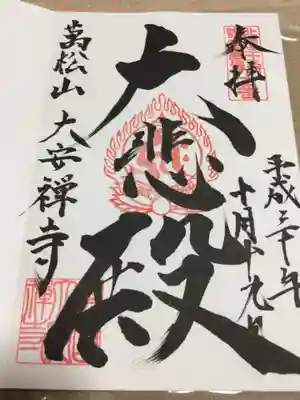 奉拝
平成三十年
十月十九日
大悲殿
萬松山
大安禅寺